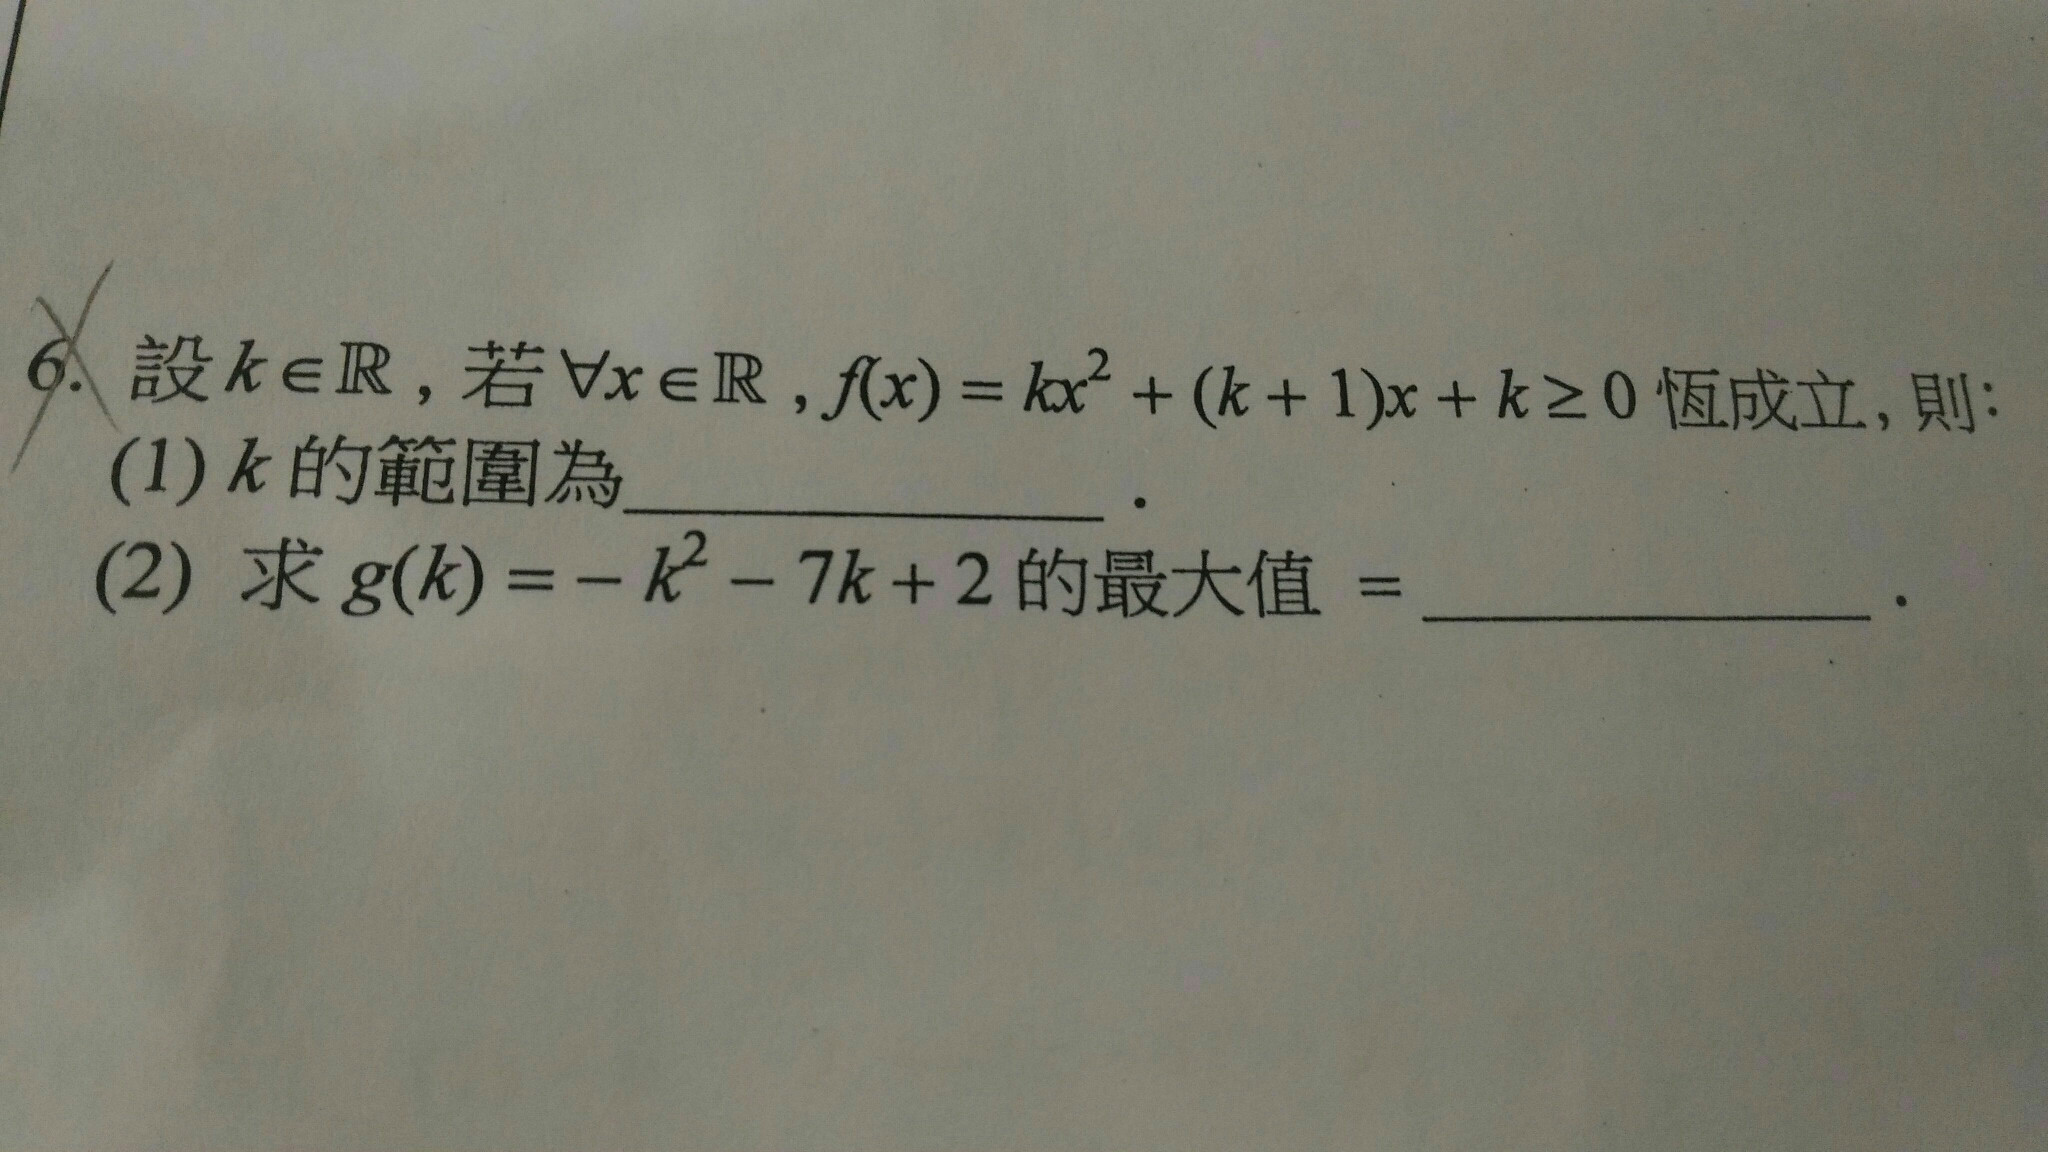 6. 設 k∈ℝ , 若 ∀x∈ℝ , f(x) = kx² + (k + 1)x + k ≥ 0 恆成立, 則:
(1) k 的範圍為__________ .
(2) 求 g(k) = – k² – 7k + 2 的最大值 = __________ .